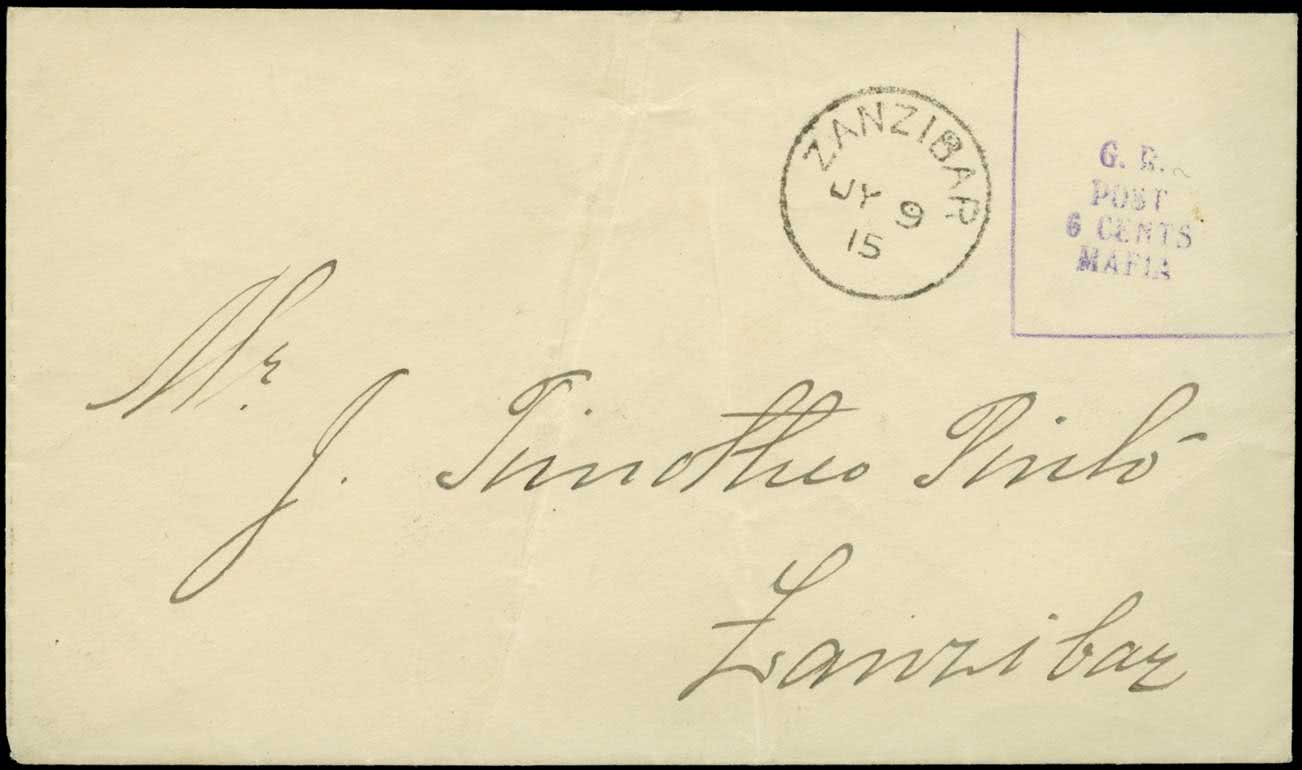 ZANZIBAR
JY 9
15
G. R.
POST
6 CENTS
MAFIA
Mr
J. Timotheo Pinto
Zanzibar